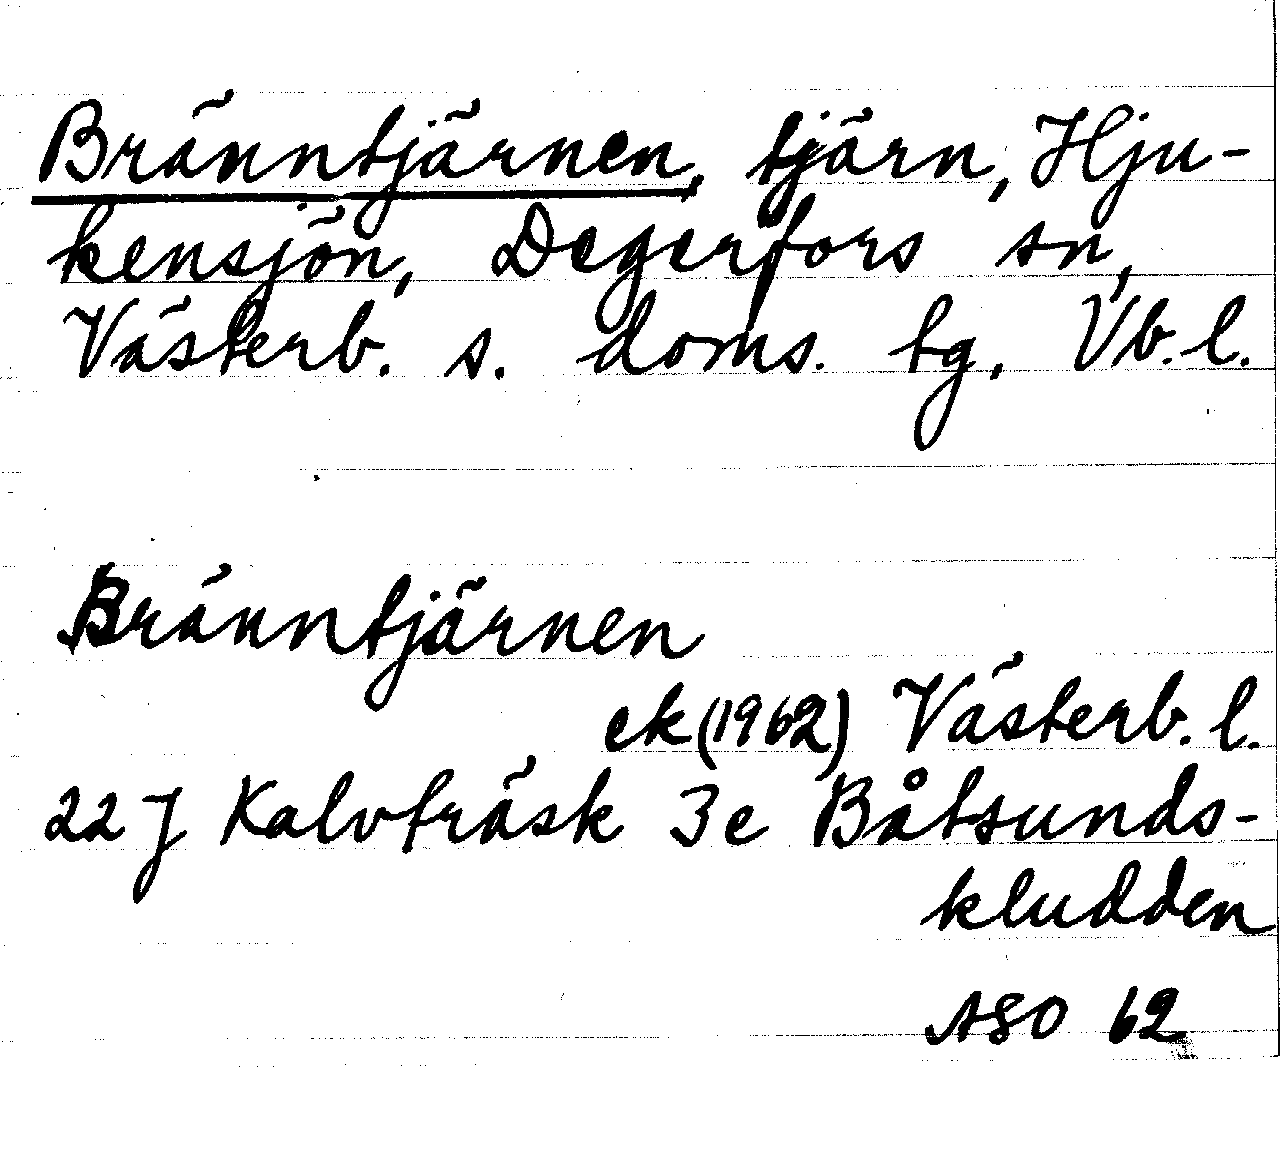 Bränntjärnen, tjärn, Hju-
kensjön, Degerfors sn,
Västerb. s. doms. tg, Vb. l.
Bränntjärnen
ek (1962) Västerb. l.
22 J Kalvträsk 3e Båtsunds-
kludden
ASO 62